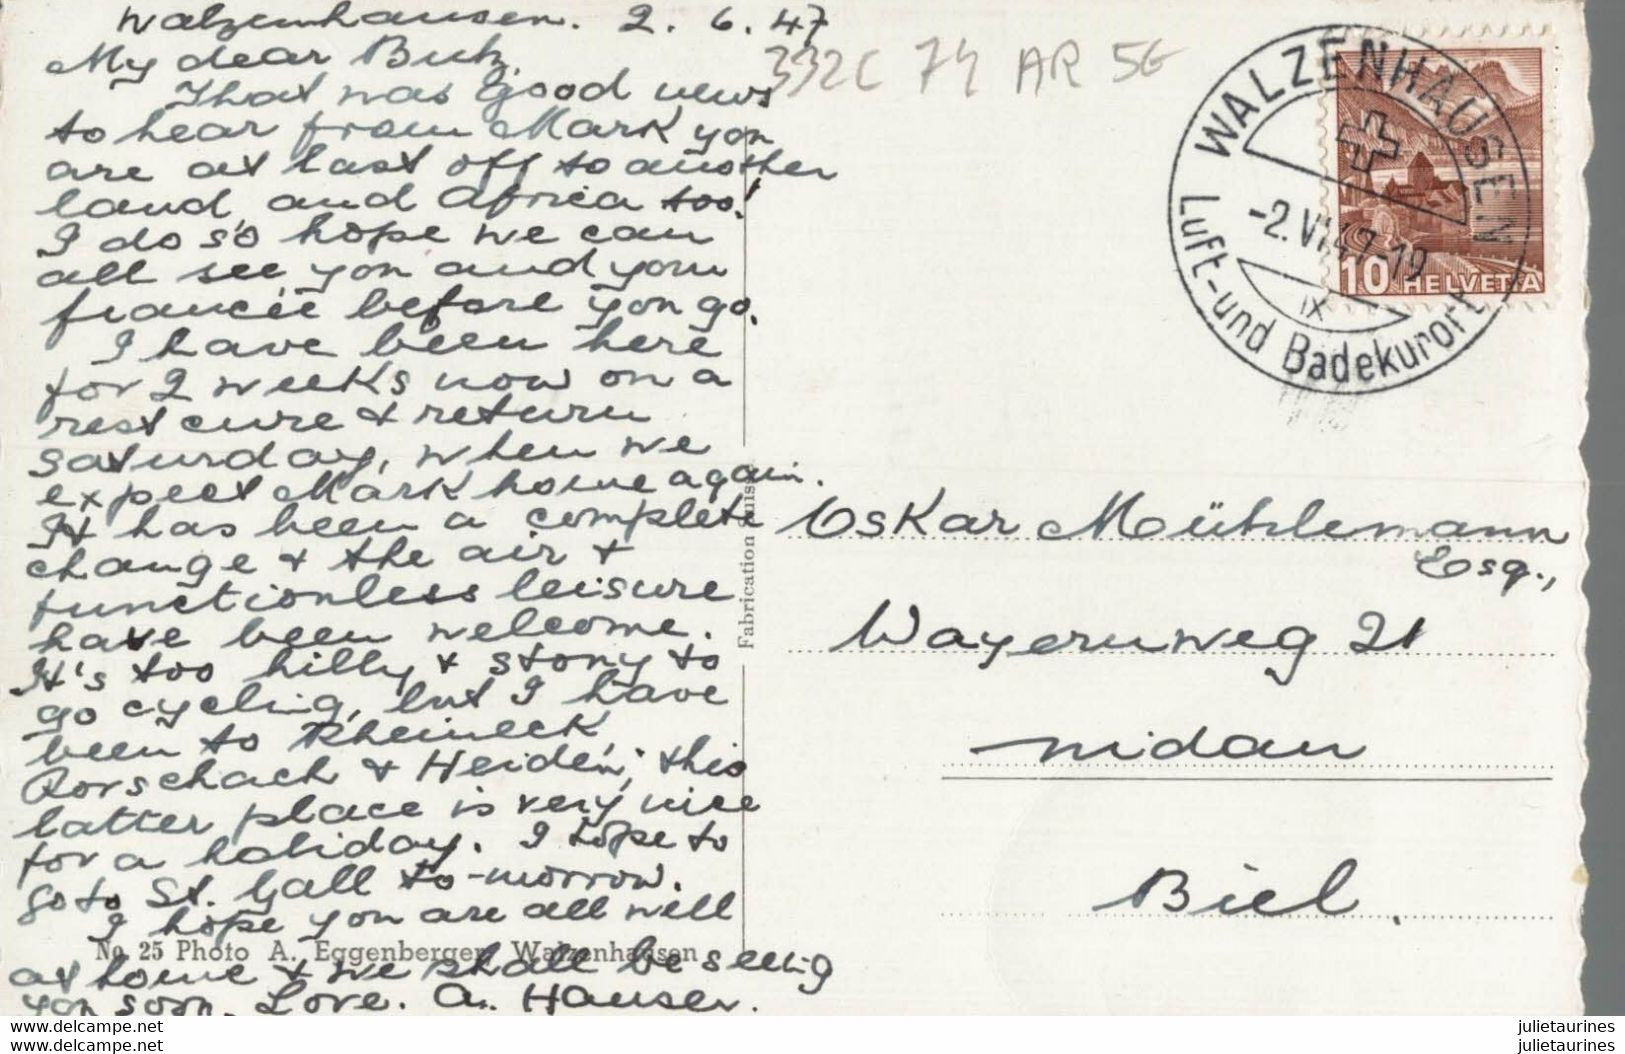 Walzenhausen. 2. 6. 47
My dear Butz,
That was good news
to hear from Mark you
are at last off to another
land, and Africa too!
I do so hope we can
all see you and your
francée before you go.
I have been here
for 2 weeks now on a
rest cure & return
saturday, when we
expect Mark home again.
It has been a complete
change & the air &
functionless leisure
have been welcome.
It's too hilly & stony to
go cycling, but I have
been to Rheineck
Rorschach & Heiden; this
latter place is very nice
for a holiday. I hope to
go to St. Gall to-morrow.
I hope you are all well
at home & we shall be seeing
you soon. Love. A. Hauser.
No 25 Photo A. Eggenberger, Walzenhausen
Fabrication Suisse
332C 74 AR 5€
WALZENHAUSEN
-2.VI.47-19
IX
Luft- und Badekurort
10 HELVETIA
Oskar Mühlemann
Esq.,
Wayernweg 21
nidau
Biel.
www.delcampe.net
www.delcampe.net
julietaurines
julietaurines